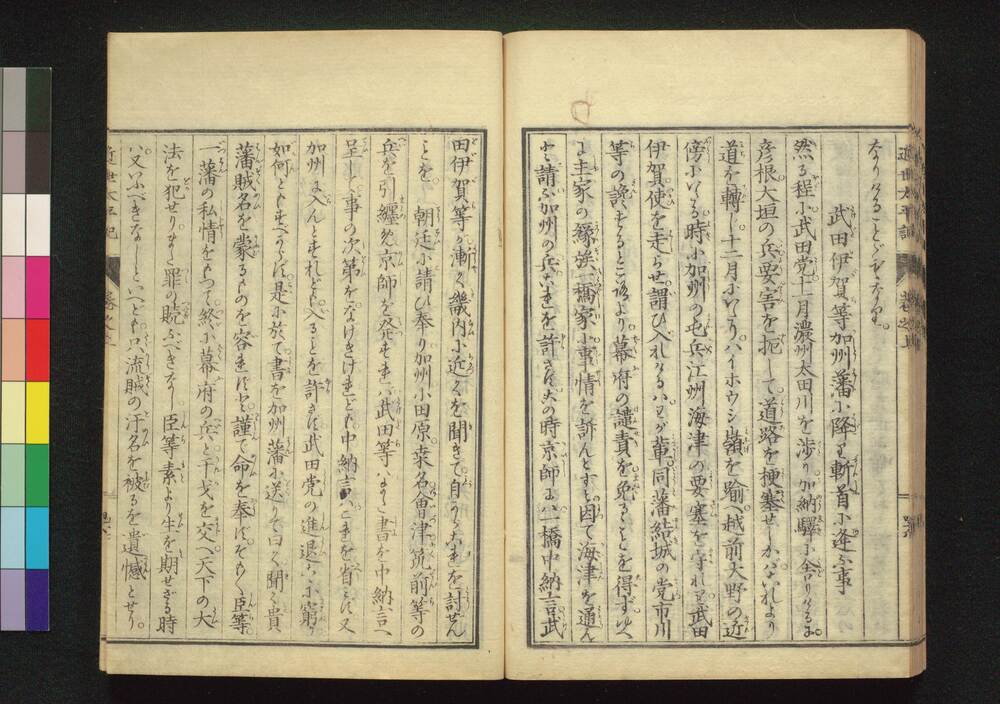 なりけることゞもなり。
武田伊賀等加州藩に降り斬首に逢ふ事
然る程に武田党十一月濃州太田川を渉り。加納駅に舎りけるに。
彦根大垣の兵要害を扼して。道路を梗塞せしかバ。これより
道を轉し十二月にいたり。ハイホウシ嶺を踰へ越前大野の近
傍にいたる時に加州の屯兵江州海津の要塞を守れり武田
伊賀使を走らせ。謂ひ入れけるハ。わが輩同藩結城の党市川
等の讒するところより。幕府の譴責を免るゝことを得ず。ゆへ
に主家の縁族一橋家に事情を訴んとす。因て海津を通ん
と請ふ加州の兵これを許さず。此の時京師にハ一橋中納言武
田伊賀等が漸く畿内に近くを聞きて。自らこれを討せん
ことを。朝廷に請ひ奉り加州小田原桒名會津筑前等の
兵を引纒め京師を発すれバ武田等ハまた書を中納言へ
呈して事の次第をなげきけれども中納言ハこれを省ミず又
加州に入んとすれども。入ることを許さず武田党の進退こゝに窮り
如何ともすべからず。是に於て。書を加州藩に送りて曰く聞く貴
藩賊名を蒙るものを容れずと。謹で命を奉ず。そも〳〵臣等
一藩の私情をもつて。終に幕府の兵と干戈を交へ天下の大
法を犯せり。また罪の贖ふべきなし。臣等素より生を期せざる時
ハ又いふべきなしといへども。只流賊の汗名を被るを遺憾とせり。
近世太平記
巻之上